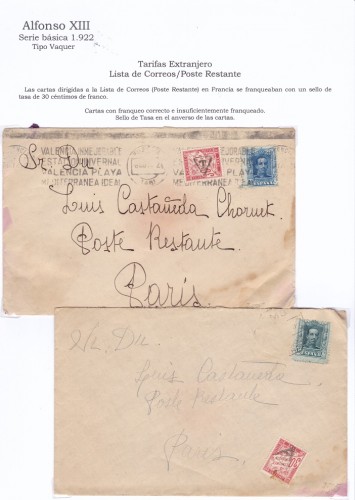 Alfonso XIII
Serie básica 1.922
Tipo Vaquer
Tarifas Extranjero
Lista de Correos/Poste Restante
Las cartas dirigidas a la Lista de Correos (Poste Restante) en Francia se franqueaban con un sello de
tasa de 30 céntimos de franco.
Cartas con franqueo correcto e insuficientemente franqueado.
Sello de Tasa en el anverso de las cartas.
VALENCIA
ESTACION INVERNAL
VALENCIA PLAYA
MEDITERRANEA IDEAL
Sr. Dn.
Luis Castañeda Chornet
Poste Restante
Paris.
Luis Castañeda
Poste Restante
Paris